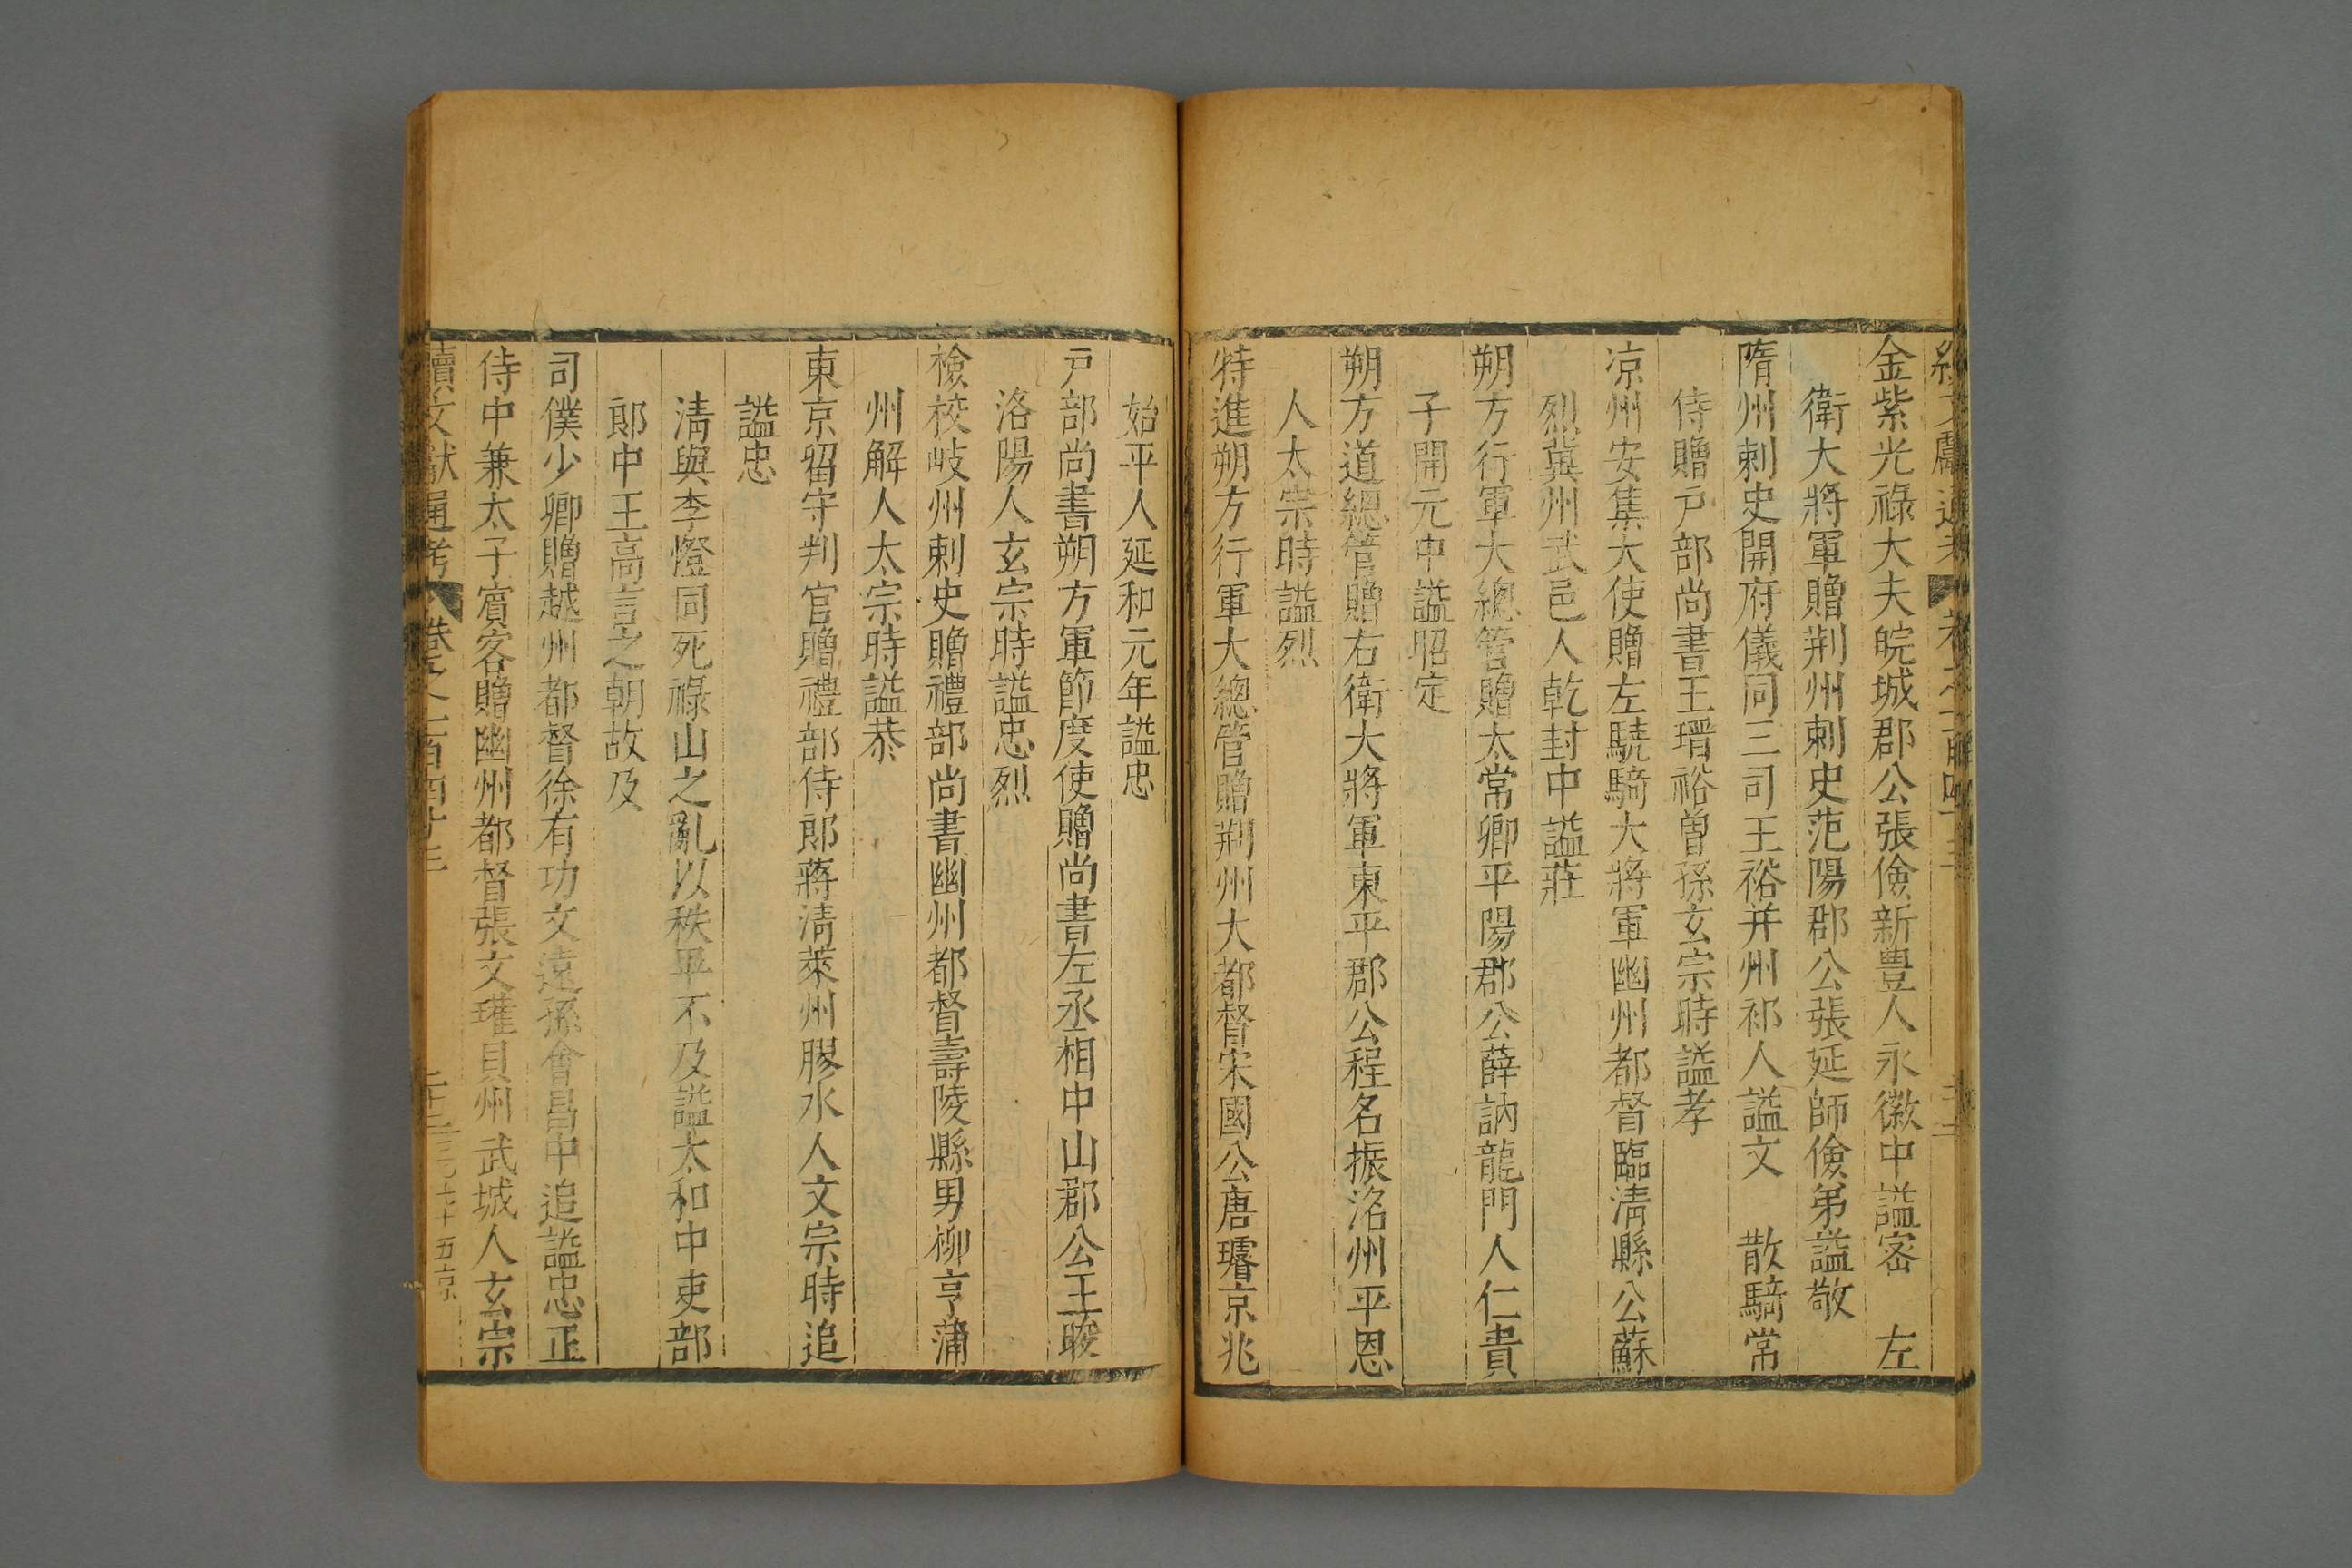 金紫光祿大夫皖城郡公張儉新豊人永徽中謚密　左
衛大將軍贈荆州刺史范陽郡公張延師儉弟謚敬
隋州刺史開府儀同三司王裕并州祁人謚文　散騎常
侍贈戸部尚書王㻛裕曾孫玄宗時謚孝
凉州安集大使贈左驍騎大將軍幽州都督臨淸縣公蘇
烈冀州武邑人乾封中謚莊
朔方行軍大總管贈太常卿平陽郡公薛訥龍門人仁貴
子開元中謚昭定
朔方道總管贈右衛大將軍東平郡公程名振洺州平恩
人太宗時謚烈
特進朔方行軍大總管贈荆州大都督宋國公唐璿京兆
始平人延和元年謚忠
戸部尚書朔方軍節度使贈尚書左丞相中山郡公王晙
洛陽人玄宗時謚忠烈
檢校岐州刺史贈禮部尚書幽州都督壽陵縣男柳亨蒲
州解人太宗時謚恭
東京留守判官贈禮部侍郎蔣淸萊州膠水人文宗時追
謚忠
淸與李憕同死祿山之亂以秩卑不及謚太和中吏部
郎中王高言之朝故及
司僕少卿贈越州都督徐有功文遠孫會昌中追謚忠正
侍中兼太子賓客贈幽州都督張文瓘貝州武城人玄宗
續文獻通考　卷之一百四十三　二十二